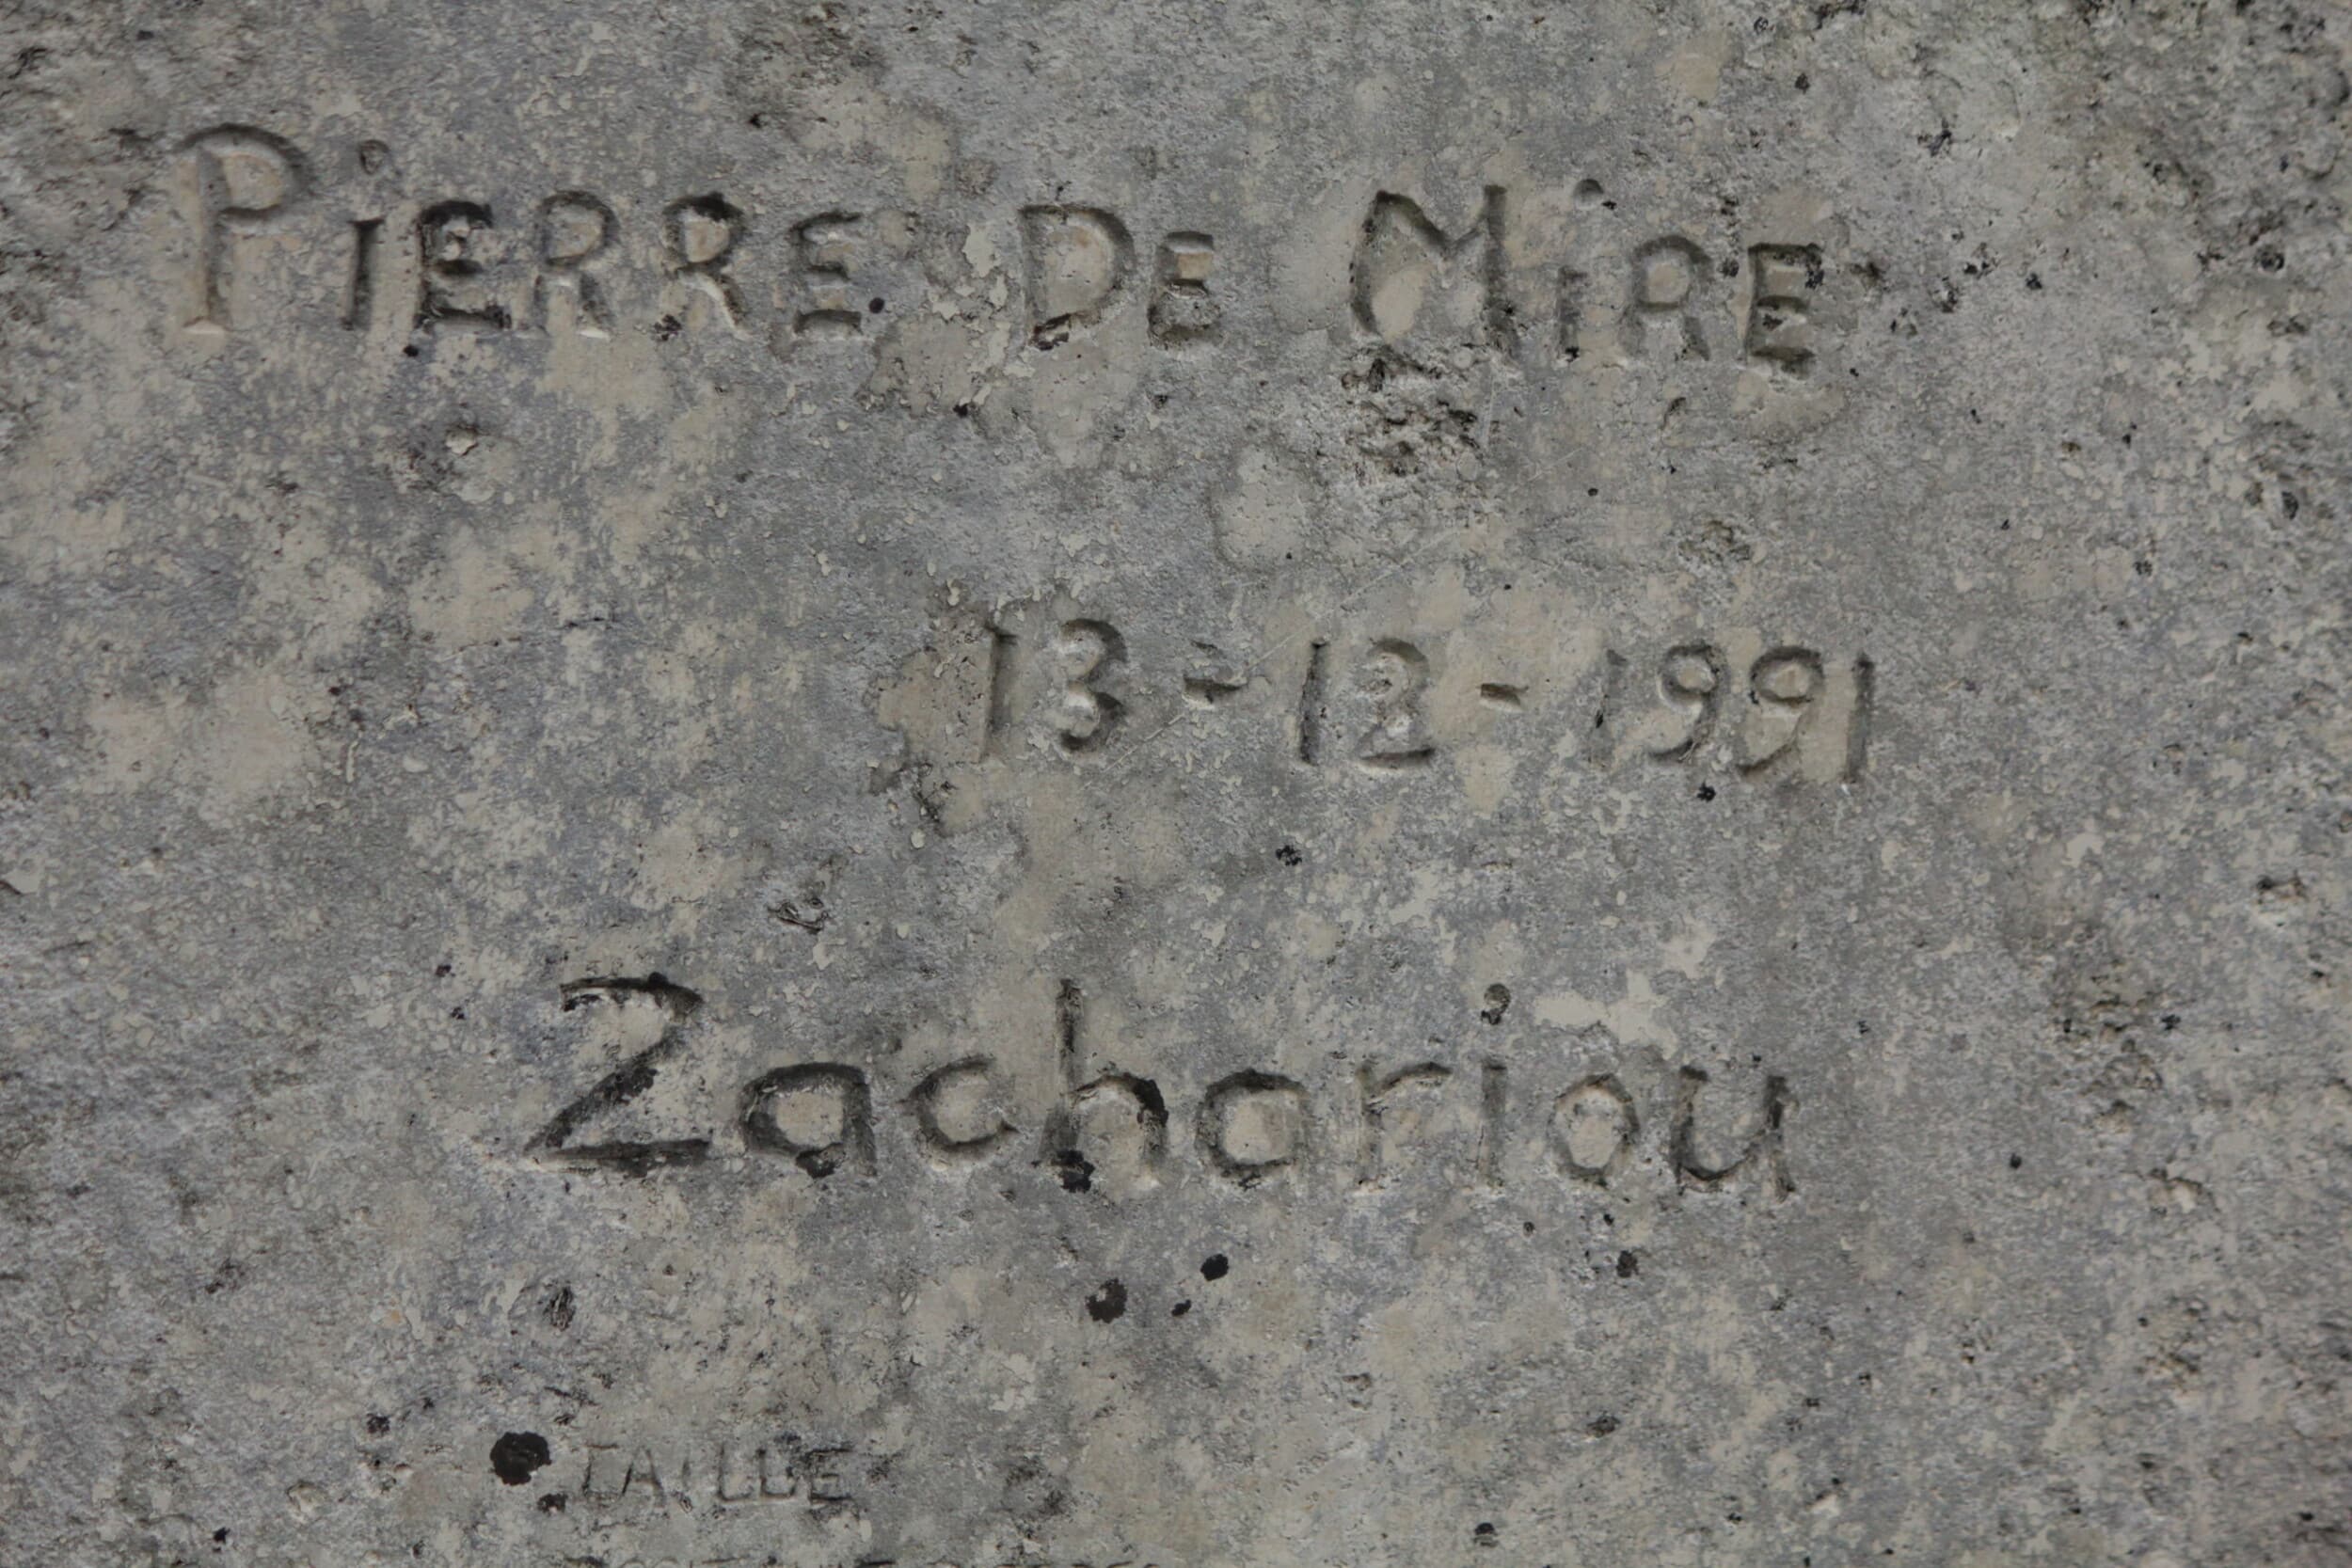 PiERRE DE MiRE
13-12-1991
Zachariou
TAILLE